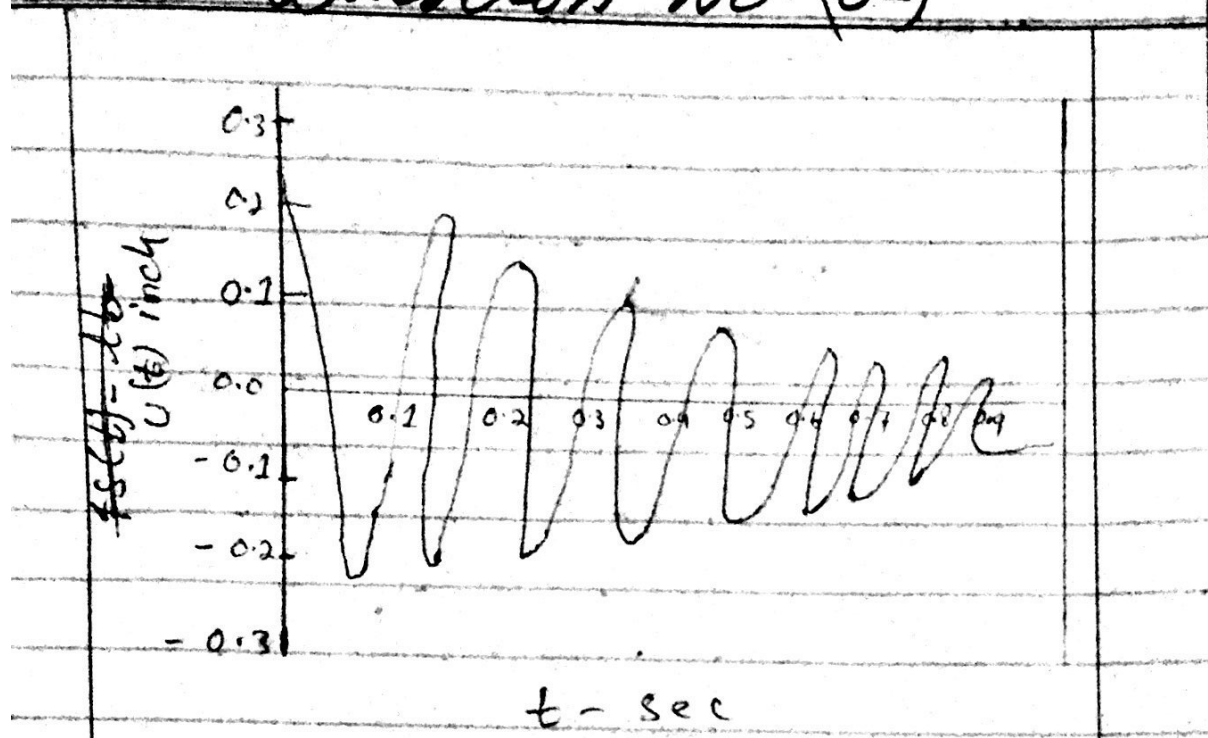 Question no (
0.3
0.2
0.1
0.0
- 0.1
- 0.2
- 0.3
u(t) inch
0.1 0.2 0.3 0.4 0.5 0.6 0.7 0.8 0.9
t - sec